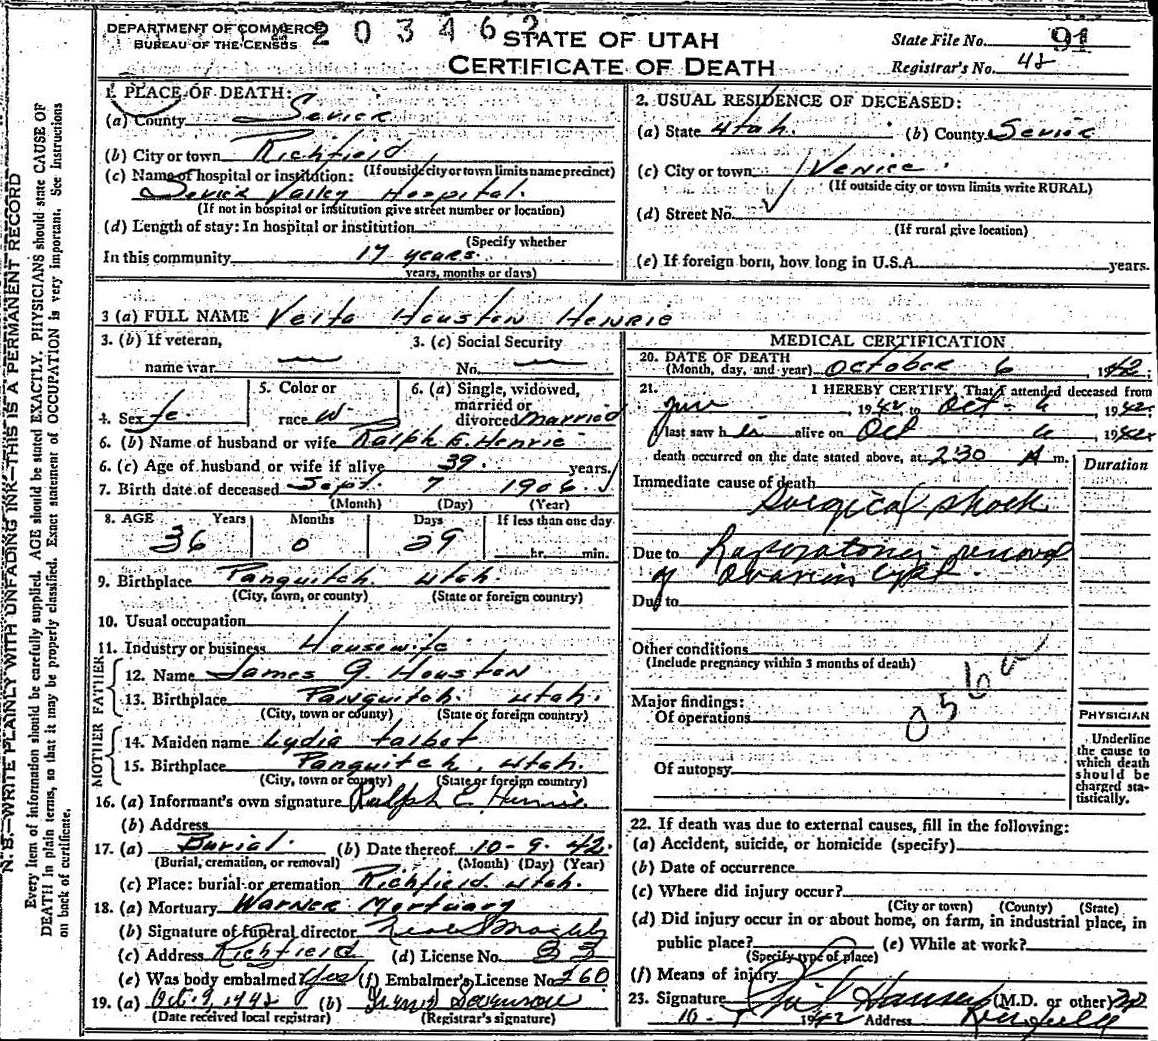 N.B.—WRITE PLAINLY WITH UNFADING INK—THIS IS A PERMANENT RECORD
Every item of information should be carefully supplied. AGE should be stated EXACTLY. PHYSICIANS should state CAUSE OF
DEATH in plain terms, so that it may be properly classified. Exact statement of OCCUPATION is very important. See Instructions
on back of certificate.
DEPARTMENT OF COMMERCE
BUREAU OF THE CENSUS
203462
STATE OF UTAH
CERTIFICATE OF DEATH
State File No. 91
Registrar's No. 42
1. PLACE OF DEATH:
(a) County Sevier
(b) City or town Richfield
(If outside city or town limits name precinct)
(c) Name of hospital or institution:
Sevier Valley Hospital.
(If not in hospital or institution give street number or location)
(d) Length of stay: In hospital or institution
(Specify whether
In this community 17 years.
years, months or days)
2. USUAL RESIDENCE OF DECEASED:
(a) State Utah. (b) County Sevier
(c) City or town Venice.
(If outside city or town limits write RURAL)
(d) Street No.
(If rural give location)
(e) If foreign born, how long in U.S.A. years.
3 (a) FULL NAME Velta Houston Henrie
3. (b) If veteran,
name war
3. (c) Social Security
No.
4. Sex fe
5. Color or
race W
6. (a) Single, widowed,
married or
divorced Married
6. (b) Name of husband or wife Ralph E. Henrie
6. (c) Age of husband or wife if alive 39. years.
7. Birth date of deceased Sept. 7 1906.
(Month) (Day) (Year)
8. AGE Years Months Days If less than one day
36 0 29 hr. min.
9. Birthplace Panguitch. Utah.
(City, town, or county) (State or foreign country)
10. Usual occupation
11. Industry or business Housewife
FATHER
12. Name James G. Houston
13. Birthplace Panguitch. Utah.
(City, town or county) (State or foreign country)
MOTHER
14. Maiden name Lydia Talbot
15. Birthplace Panguitch, Utah.
(City, town or county) (State or foreign country)
16. (a) Informant's own signature Ralph E. Henrie
(b) Address
17. (a) Burial. (b) Date thereof 10-9-42.
(Burial, cremation, or removal) (Month) (Day) (Year)
(c) Place: burial or cremation Richfield Utah.
18. (a) Mortuary Warner Mortuary
(b) Signature of funeral director
(c) Address Richfield (d) License No. 33
(e) Was body embalmed Yes (f) Embalmer's License No. 260
19. (a) Oct. 9, 1942 (b)
(Date received local registrar) (Registrar's signature)
MEDICAL CERTIFICATION
20. DATE OF DEATH
(Month, day, and year) October 6, 1942.
21. I HEREBY CERTIFY, That I attended deceased from
1942 to Oct-6 1942.
I last saw her alive on Oct 6 1942.
death occurred on the date stated above, at 230 A m.
Duration
Immediate cause of death
Surgical shock
Due to Laparatomy - removal
of ovarian cyst.
Due to
Other conditions
(Include pregnancy within 3 months of death)
Major findings:
Of operations
Of autopsy
PHYSICIAN
Underline
the cause to
which death
should be
charged sta-
tistically.
22. If death was due to external causes, fill in the following:
(a) Accident, suicide, or homicide (specify)
(b) Date of occurrence
(c) Where did injury occur?
(City or town) (County) (State)
(d) Did injury occur in or about home, on farm, in industrial place, in
public place? (e) While at work?
(Specify type of place)
(f) Means of injury
23. Signature (M.D. or other)
1942 Address Richfield